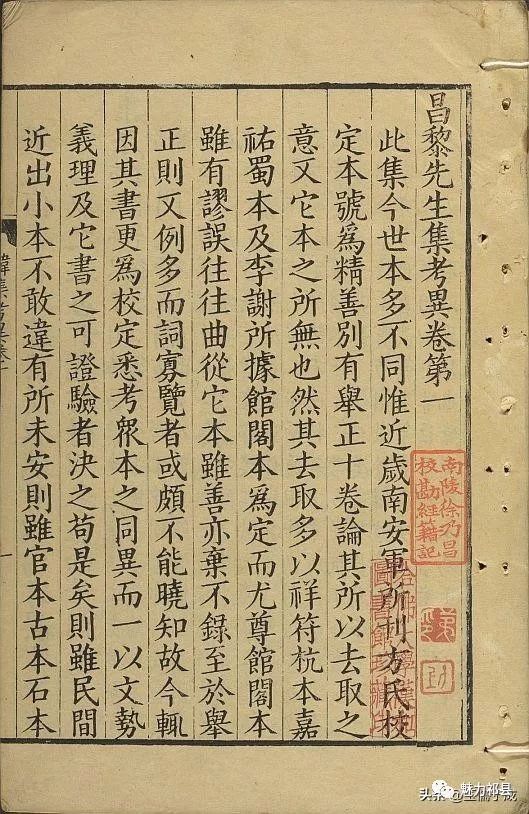 昌黎先生集考異卷第一
此集今世本多不同惟近歲南安軍所刊方氏校
定本號爲精善別有舉正十卷論其所以去取之
意又它本之所無也然其去取多以祥符杭本嘉
祐蜀本及李謝所據館閣本爲定而尤尊館閣本
雖有謬誤往往曲從它本雖善亦棄不錄至於舉
正則又例多而詞寡覽者或頗不能曉知故今輒
因其書更爲校定悉考眾本之同異而一以文勢
義理及它書之可證驗者決之苟是矣則雖民間
近出小本不敢違有所未安則雖官本古本石本
韓集考異卷一
一
南陵徐乃昌
校勘經籍記
魅力祁县
头条